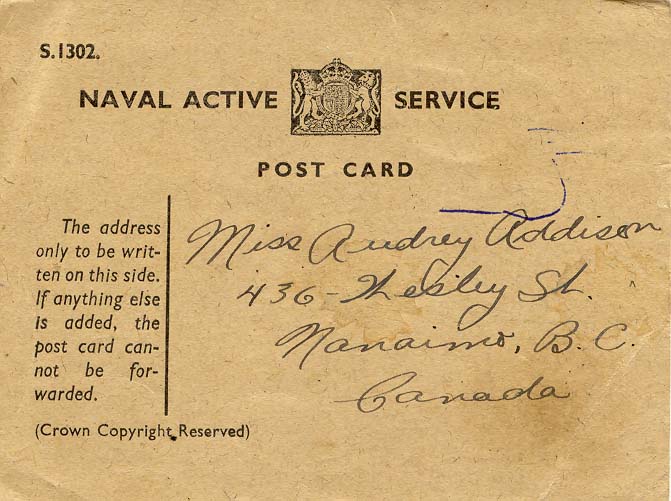 S.1302.
NAVAL ACTIVE SERVICE
POST CARD
The address
only to be writ-
ten on this side.
If anything else
is added, the
post card can-
not be for-
warded.
(Crown Copyright Reserved)
Miss Audrey Addison
436-Wesley St.
Nanaimo, B.C.
Canada